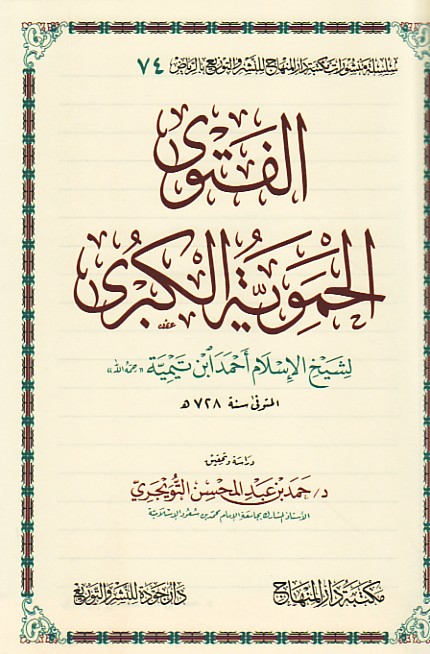 سلسلة منشورات مكتبة دار المنهاج للنشر والتوزيع بالرياض ٧٤
الفتوى
الحموية الكبرى
لشيخ الإسلام أحمد ابن تيمية «رحمه الله»
المتوفى سنة ٧٢٨ هـ
دراسة وتحقيق
د/حمد بن عبد المحسن التويجري
الأستاذ المشارك بجامعة الإمام محمد بن سعود الإسلامية
مكتبة دار المنهاج
دار جودة للنشر والتوزيع